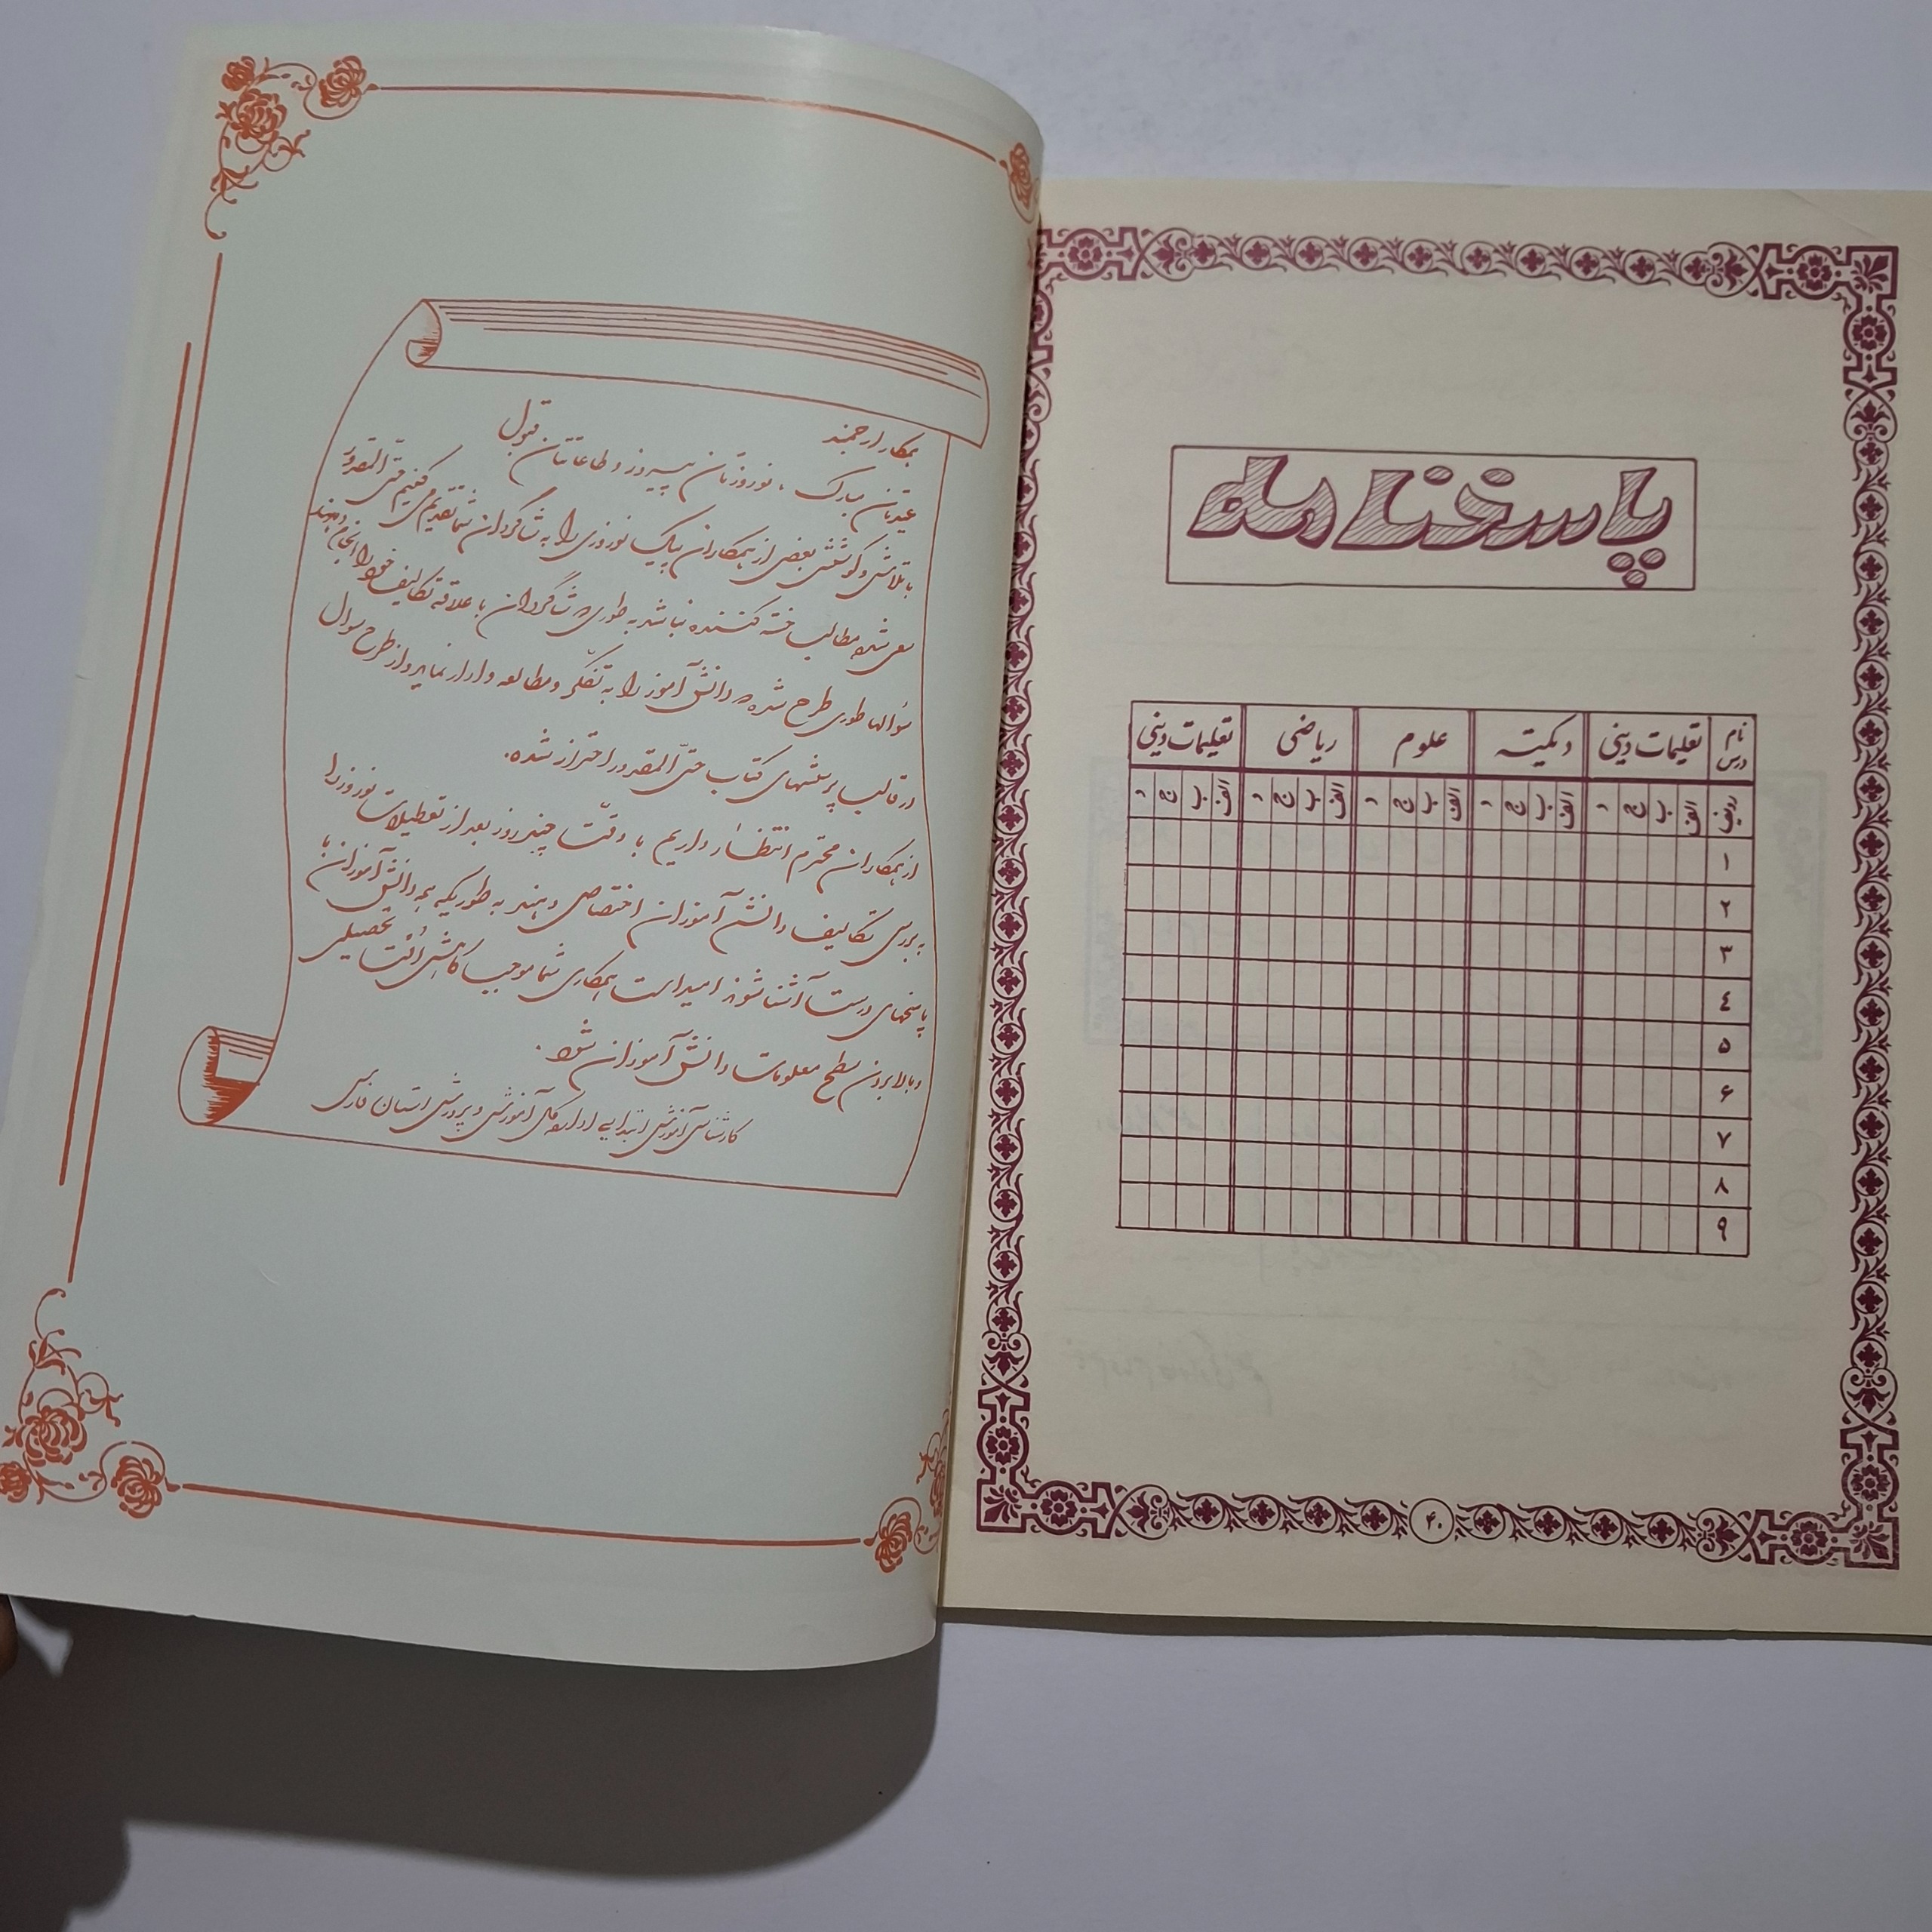 همکار ارجمند
عیدتان مبارک، نوروزتان پیروز و طاعاتتان قبول
با تلاش و کوشش بعضی از همکاران پیک نوروزی را به شاگردان شما تقدیم می کنیم حتی المقدور
سعی شده مطالب خسته کننده نباشد به طوری که شاگردان با علاقه تکالیف خود را انجام دهند
سوالها طوری طرح شده که دانش آموز را به تفکّر و مطالعه وادار نماید و از طرح سوال
در قالب پرسشهای کتاب حتّی المقدور احتراز شده.
از همکاران محترم انتظار داریم با دقّت چند روز بعد از تعطیلات نوروز را
به بررسی تکالیف دانش آموزان اختصاص دهند به طوریکه همه دانش آموزان با
پاسخهای درست آشنا شوند امید است همکاری شما موجب کاهش اُفت تحصیلی
و بالا بردن سطح معلومات دانش آموزان شود.
کارشناسی آموزش ابتدایی اداره کل آموزش و پرورش استان فارس
پاسخنامه
نام درس تعلیمات دینی دیکته علوم ریاضی تعلیمات دینی
ردیف الف ب ج د الف ب ج د الف ب ج د الف ب ج د الف ب ج د
۱
۲
۳
٤
۵
۶
۷
۸
۹
۴۰